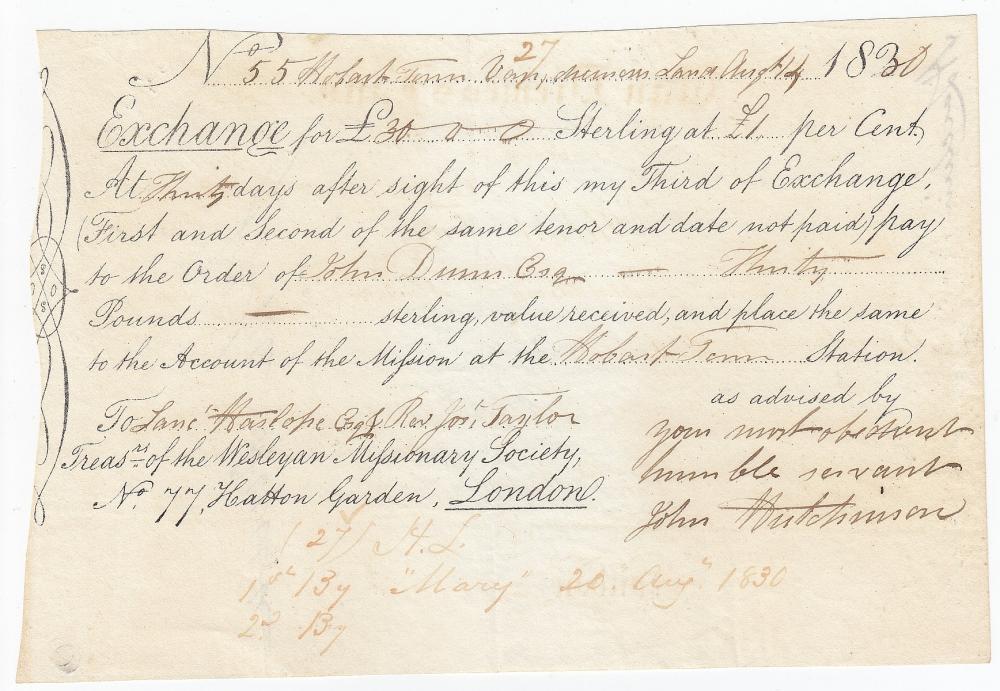 27
No 55 Hobart Town Van diemens Land Augt 14 1830
Exchange for £30 0 0 Sterling at £1 per Cent,
At Thirty days after sight of this my Third of Exchange,
(First and Second of the same tenor and date not paid) pay
to the Order of John Dunn Esq — Thirty
Pounds — sterling, value received, and place the same
to the Account of the Mission at the Hobart Town Station.
as advised by
your most obedient
humble servant
John Hutchinson
To Lanct Haslope Esq & Rev Josh Taylor
Treasrs of the Wesleyan Missionary Society,
No. 77, Hatton Garden, London.
(27) H. L.
1st By "Mary" 20 Augt 1830
2d By